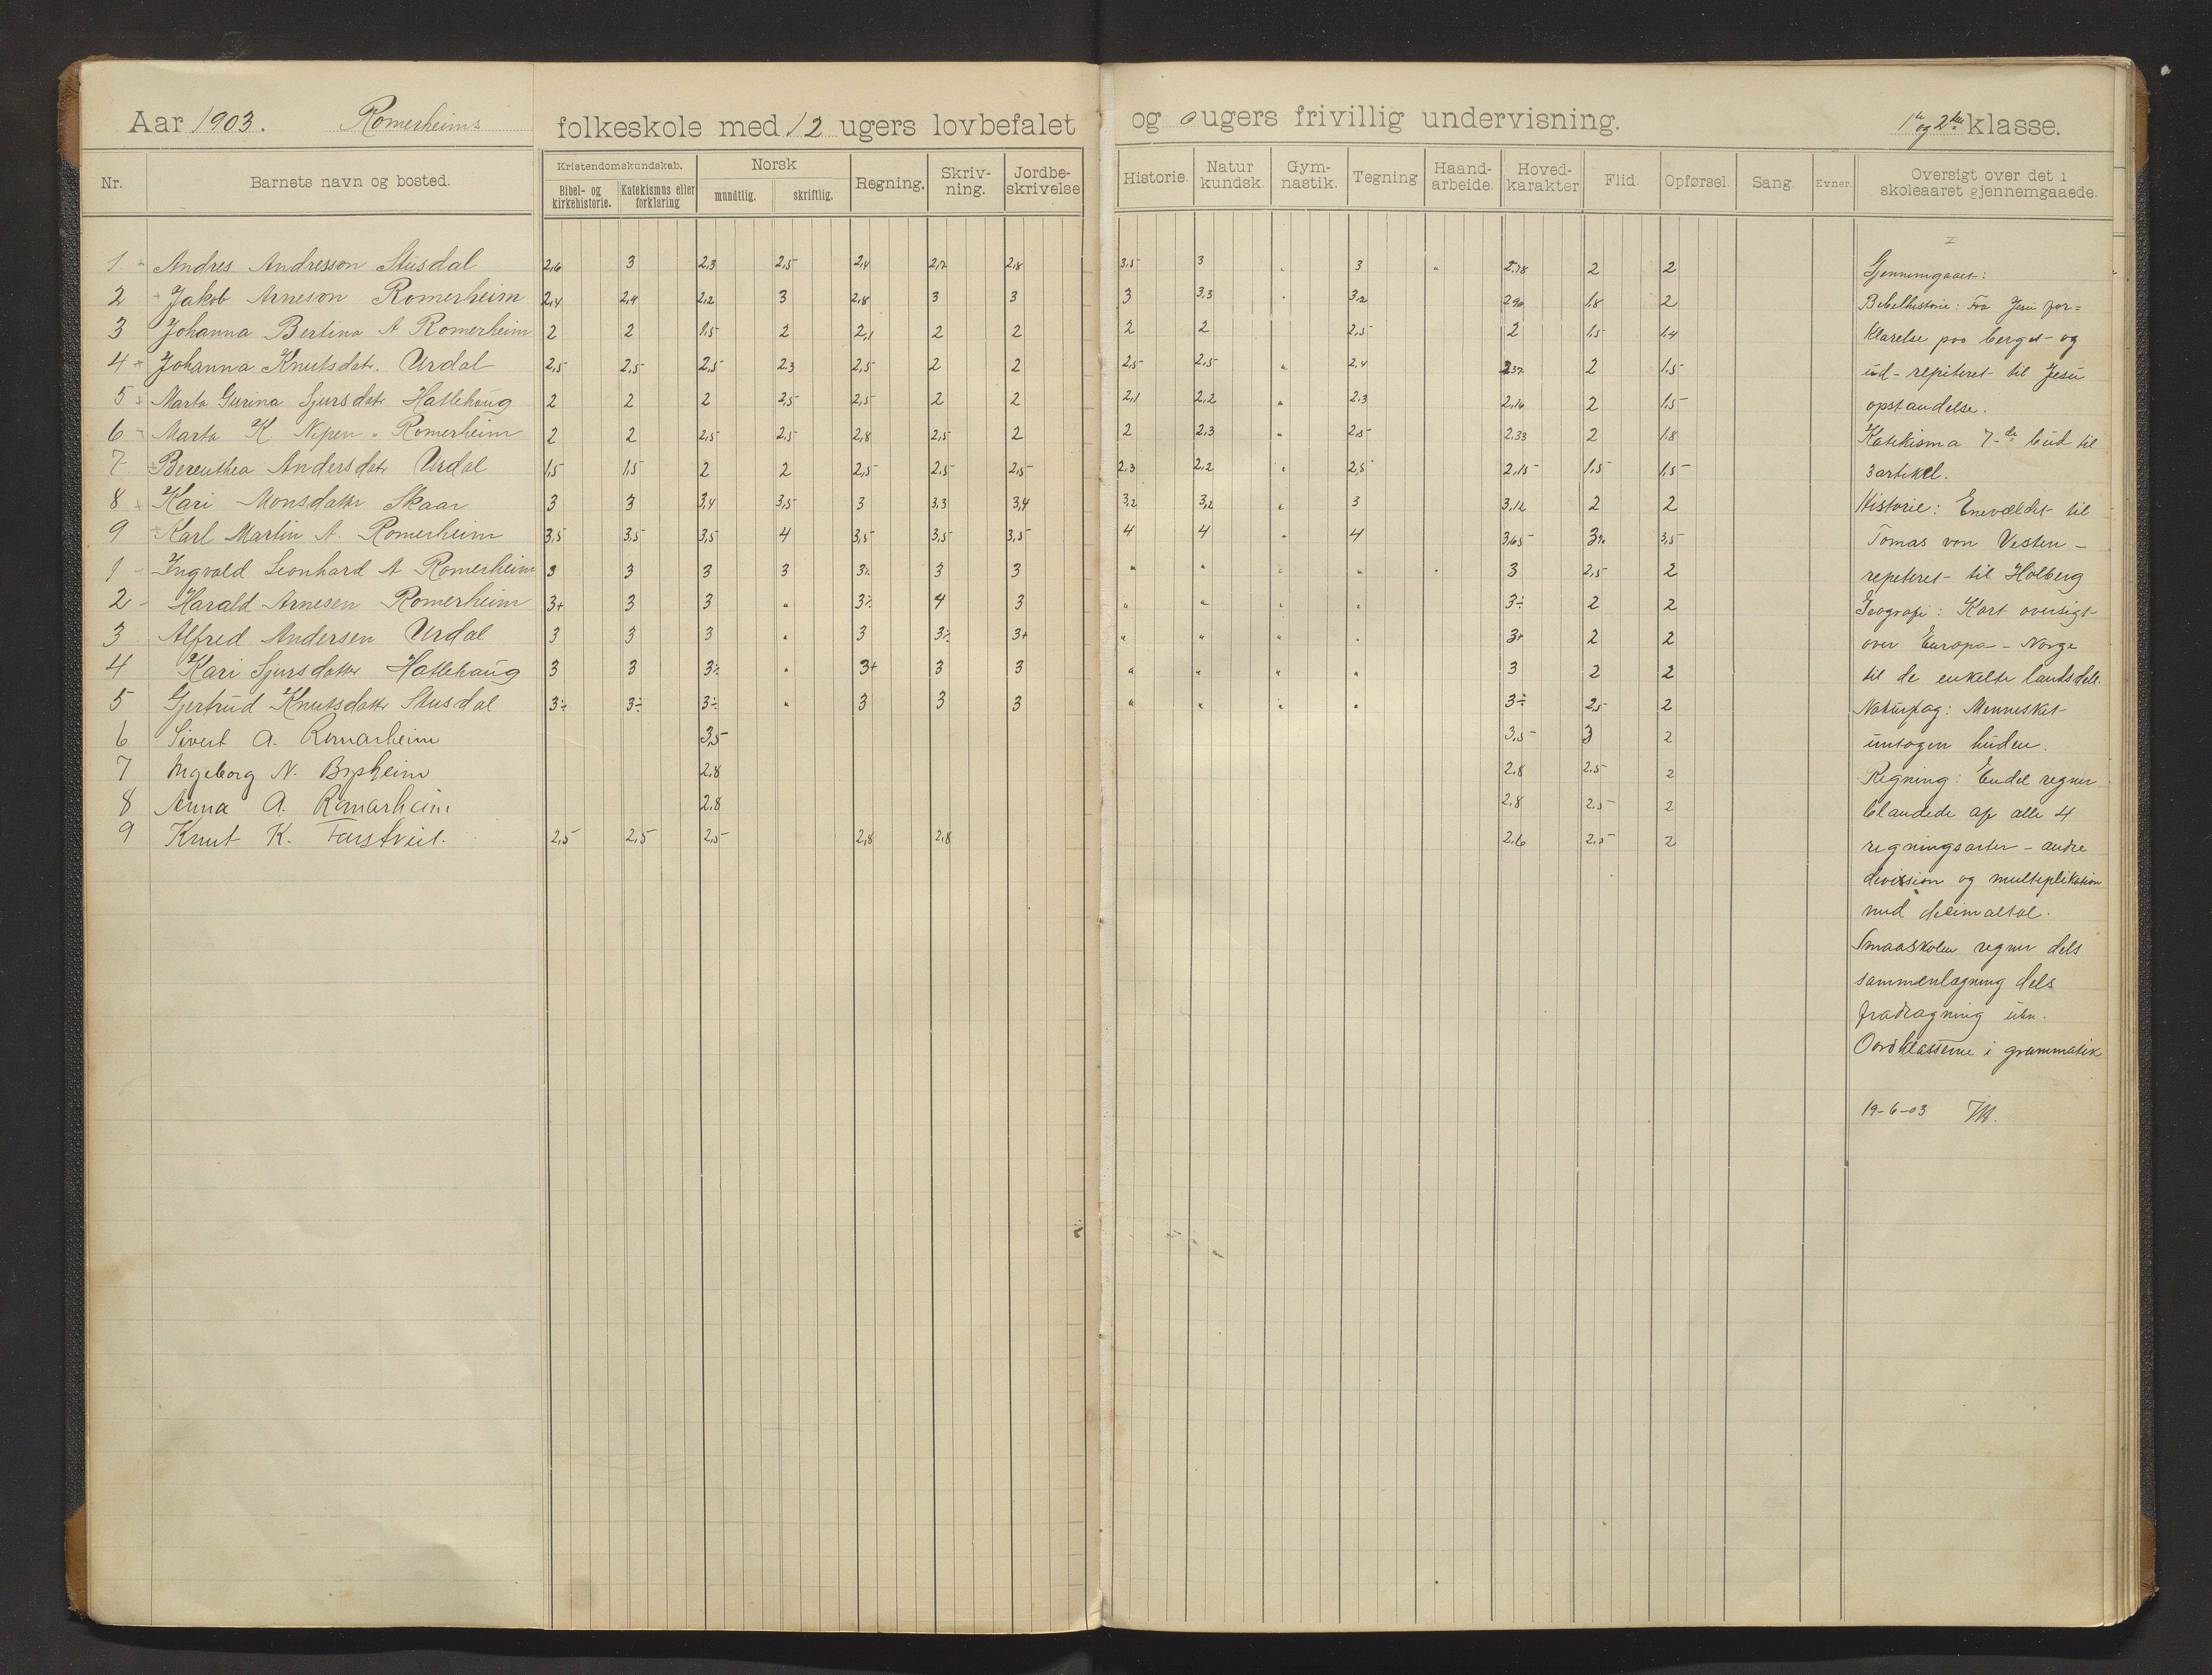 Aar 1903. Romerheims folkeskole med 12 ugers lovbefalet og 0 ugers frivillig undervisning. 1te og 2den klasse.
Nr. Barnets navn og bosted. Kristendomskundskab. Bibel- og kirkehistorie. Katekismus eller forklaring Norsk mundtlig. skriftlig. Regning. Skriv-ning. Jordbe-skrivelse Historie. Natur kundsk. Gym-nastik. Tegning Haand-arbeide. Hoved-karakter Flid. Opførsel. Sang. Evner. Oversigt over det i skoleaaret gjennemgaaede.
1 Andres Andresson Stusdal 2,6 3 2,3 2,5 2,4 2,2 2,8 3,5 3 " 3 " 2,78 2 2
2 Jakob Arneson Romerheim 2,4 2,4 2,2 3 2,8 3 3 3 3,3 " 3,2 2,90 1,8 2
3 Johanna Bertina A Romerheim 2 2 1,5 2 2,1 2 2 2 2 2,5 2 1,5 1,4
4 Johanna Knutsdatr. Urdal 2,5 2,5 2,5 2,3 2,5 2 2 2,5 2,5 " 2,4 2,32 2 1,5
5 Marta Gurina Sjursdatr Hatlehaug 2 2 2 2,5 2,5 2 2 2,1 2,2 " 2,3 2,16 2 1,5
6 Marta K. Nipen - Romerheim 2 2 2,5 2,5 2,8 2,5 2 2 2,3 " 2,5 2,33 2 1,8
7 Berenthea Andersdatr Urdal 1,5 1,5 2 2 2,5 2,5 2,5 2,3 2,2 " 2,5 2,15 1,5 1,5
8 Kari Monsdatter Skaar 3 3 3,4 3,5 3 3,3 3,4 3,2 3,2 " 3 3,12 2 2
9 Karl Martin A. Romerheim 3,5 3,5 3,5 4 3,5 3,5 3,5 4 4 " 4 3,65 3 3,5
1 Ingvald Leonhard A Romerheim 3 3 3 3 3÷ 3 3 " " " " " 3 2,5 2
2 Harald Arnesen Romerheim 3+ 3 3 " 3÷ 4 3 " " " " 3÷ 2 2
3 Alfred Andersen Urdal 3 3 3 " 3 3÷ 3+ " " " " 3+ 2 2
4 Kari Sjursdatter Hatlehaug 3 3 3÷ " 3+ 3 3 " " " " 3 2 2
5 Gjertrud Knutsdatter Stusdal 3÷ 3÷ 3÷ " 3 3 3 " " " " 3÷ 2,5 2
6 Sivert A. Romarheim 3,5 3,5 3 2
7 Ingeborg N. Bysheim 2,8 2,8 2.5 2
8 Anna A. Romarheim 2,8 2,8 2.5 2
9 Knut K. Farstveit. 2,5 2,5 2,5 2,8 2,8 2,6 2.5 2
I
Gjennemgaaet:
Bibelhistorie: Fra Jesu for=
klarelse paa berget og
ud - repiteret til Jesu
opstandelse.
Katekisma 7-de bud til
3 artikel.
Historie: Enevældet til
Tomas von Vesten -
repeteret til Holberg
Geografi: Kort oversigt
over Europa - Norge
til de enkelte landsdele.
Naturfag: Mennesket
untagen huden.
Regning: Endel regner
blandede af alle 4
regningsarter - andre
division og multiplikation
med desimaltal.
Smaaskolen regner dels
sammenlægning dels
fradragning uten.
Ordklasserne i grammatik
19-6-03